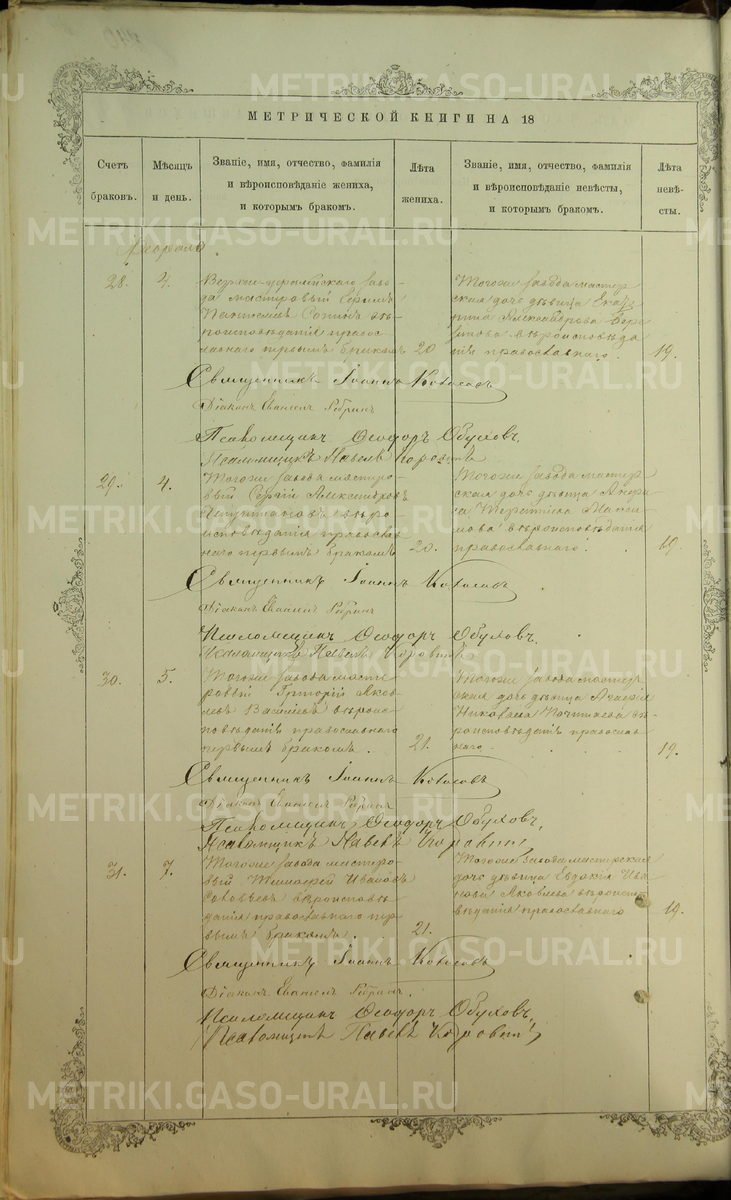 МЕТРИЧЕСКОЙ КНИГИ НА 18
Счетъ браковъ.
Мѣсяцъ и день.
Званіе, имя, отчество, фамилія
и вѣроисповѣданіе жениха,
и которымъ бракомъ.
Лѣта жениха.
Званіе, имя, отчество, фамилія
и вѣроисповѣданіе невѣсты,
и которымъ бракомъ.
Лѣта невѣ-
сты.
28. 4.
Верхне-уфалейскаго заво-
да мастеровый
вѣ-
роисповѣданія правос-
лавнаго первымъ бракомъ 20
Тогоже завода мастер
ская дочь дѣвица Екате
рина Александрова
вѣроисповѣда
нія православнаго. 19.
Священникъ Іоаннъ
Діаконъ
Псаломщикъ Ѳеодоръ Обуховъ.
Псаломщикъ Павелъ
29. 4.
Тогоже завода мастеро-
вый Сергій Александровъ
вѣро
исповѣданія православ
наго первымъ бракомъ 20.
Тогоже завода мастер
ская дочь дѣвица
Терентьева Макси
мова вѣроисповѣданія
православнаго. 19
Священникъ Іоаннъ
Діаконъ
Псаломщикъ Ѳеодоръ Обуховъ.
Псаломщикъ Павелъ
30. 5.
Тогоже завода масте
ровый Григорій Яков
левъ Васильевъ вѣроис
повѣданія православнаго
первымъ бракомъ. 21.
Тогоже завода мастер
ская дочь дѣвица
Николаева вѣ-
роисповѣданія православ
наго. 19.
Священникъ Іоаннъ
Діаконъ
Псаломщикъ Ѳеодоръ Обуховъ.
Псаломщикъ Павелъ
31. 7.
Тогоже завода мастеро-
вый Тимофей Ивановъ
Соловьевъ вѣроисповѣ
данія православнаго пер
вымъ бракомъ. 21.
Тогоже завода мастерская
дочь дѣвица Евдокія Ива
нова Яковлева вѣроиспо
вѣданія православнаго 19.
Священникъ Іоаннъ
Діаконъ
Псаломщикъ Ѳеодоръ Обуховъ.
Псаломщикъ Павелъ
METRIKI.GASO-URAL.RU